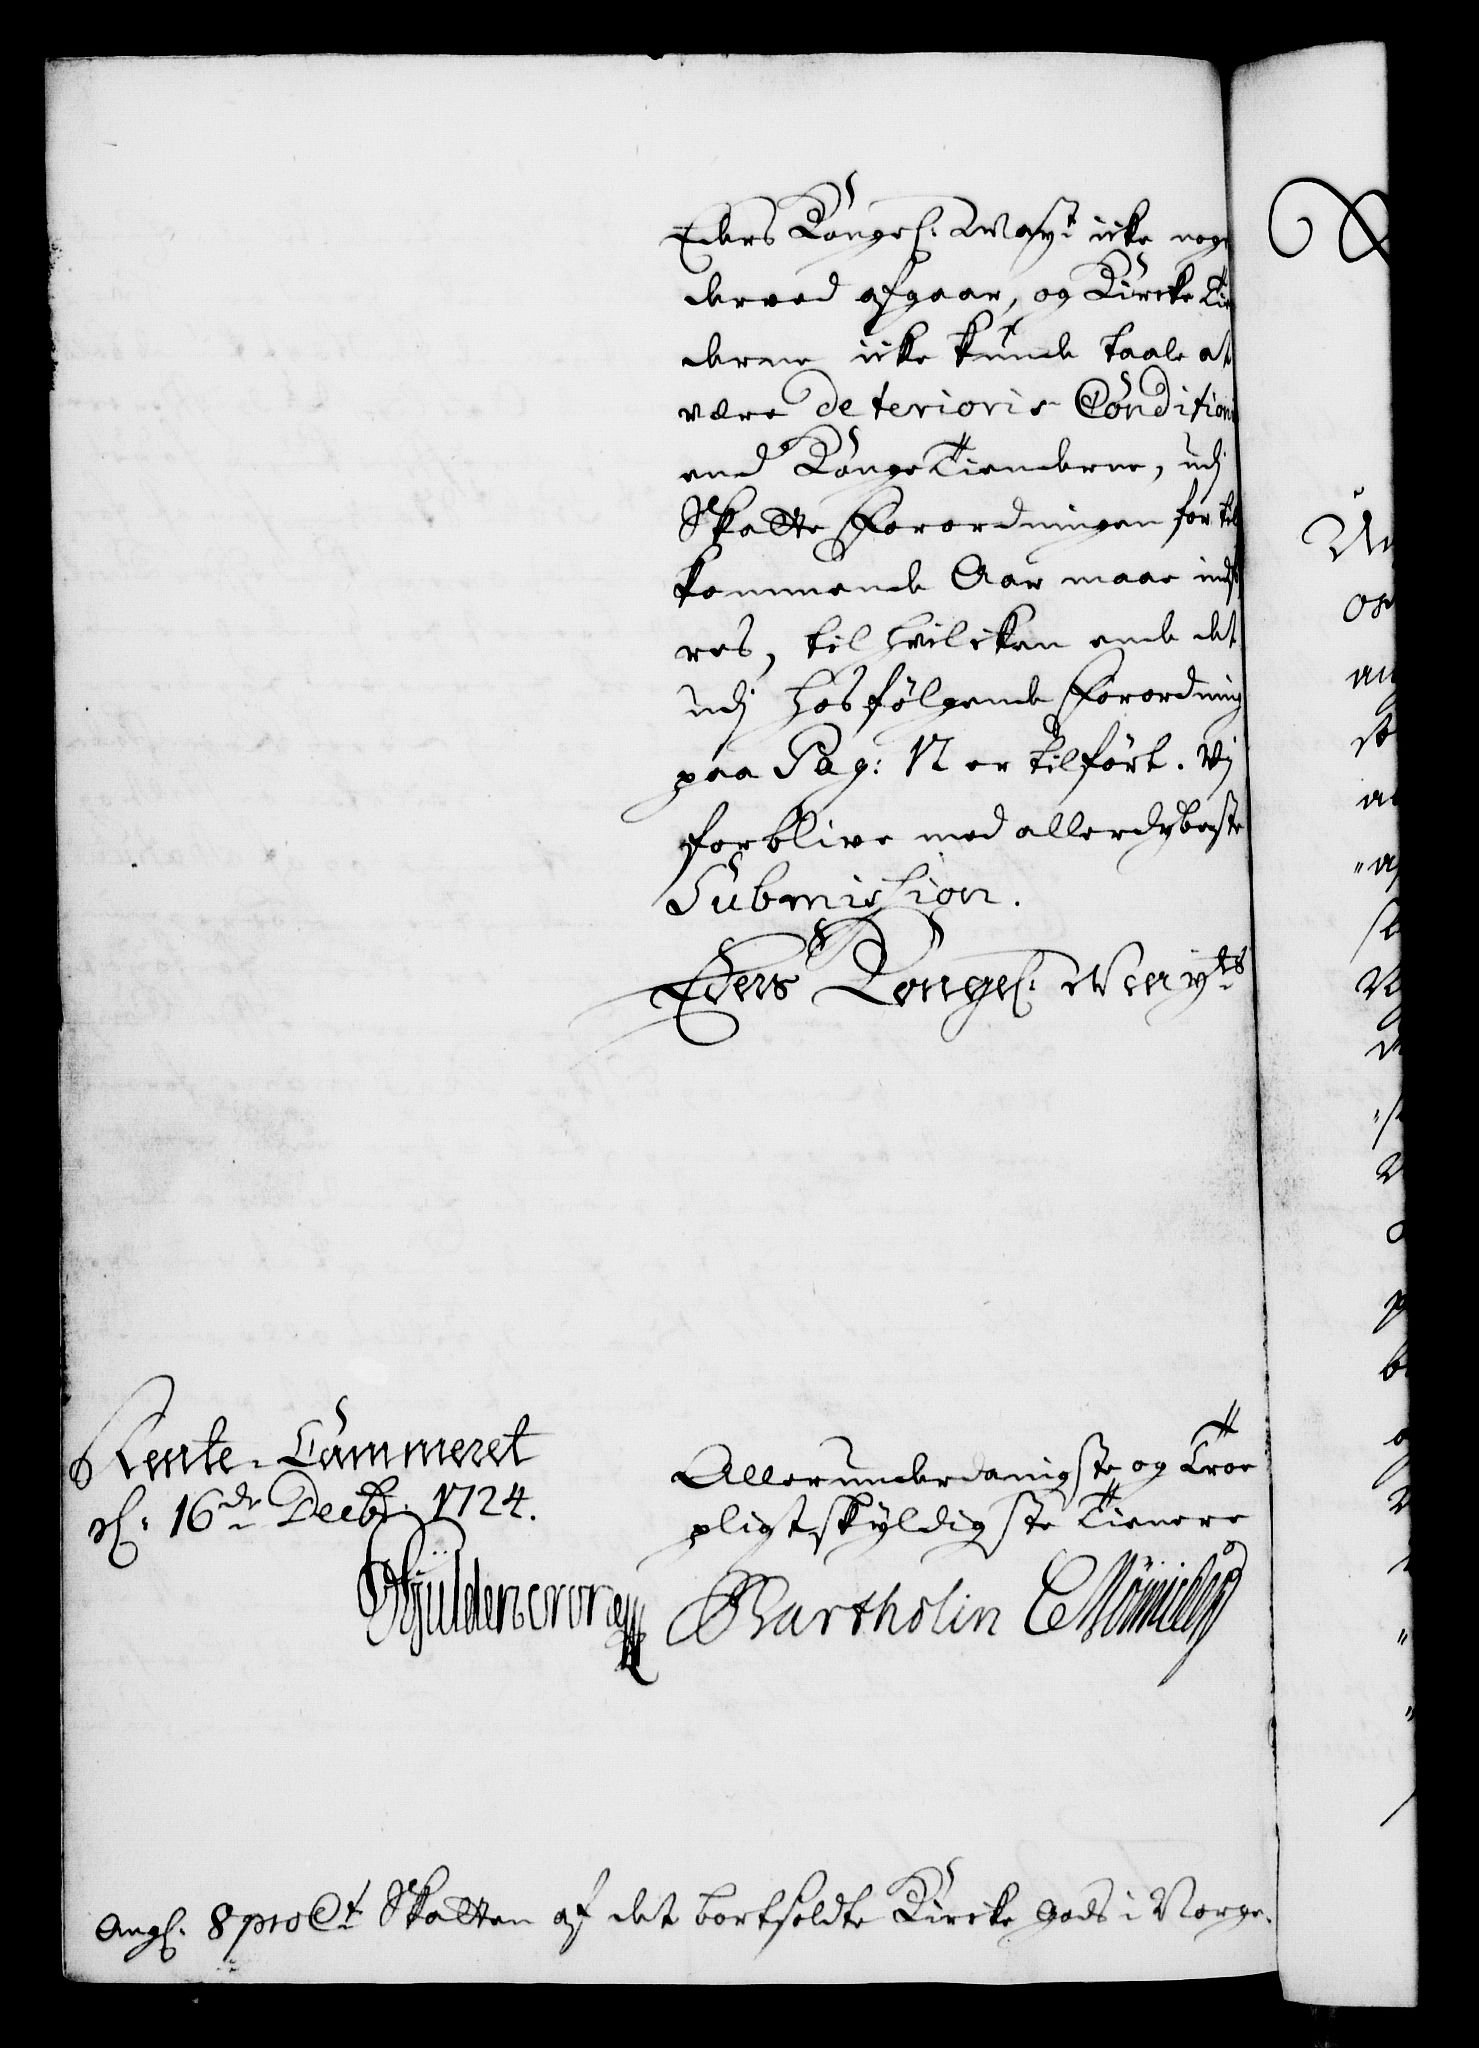 Eders Kongel: Mayt icke noge
derved afgaar, og Kircke Tie
derne icke kunde taale at
være deterioris Conditioni
end Konge Tienderne, udj
Skatte Forordningen for til
kommende Aar maae indfø
res, til hvilcken ende det
udj hosfølgende Forordning
paa Pag: 12 er tilført. Vj
forblive med allerdybeste
Submission.
Eders Kongel: Mayts
Rente-Cammeret
d: 16de Decbr: 1724.
Allerunderdanigste og Troe
pligtskyldigste Tienere
Gyldencrone
Bartholin
Angl: 8 pro Ct Skatten af det bortsoldte Kircke gods i Norge.